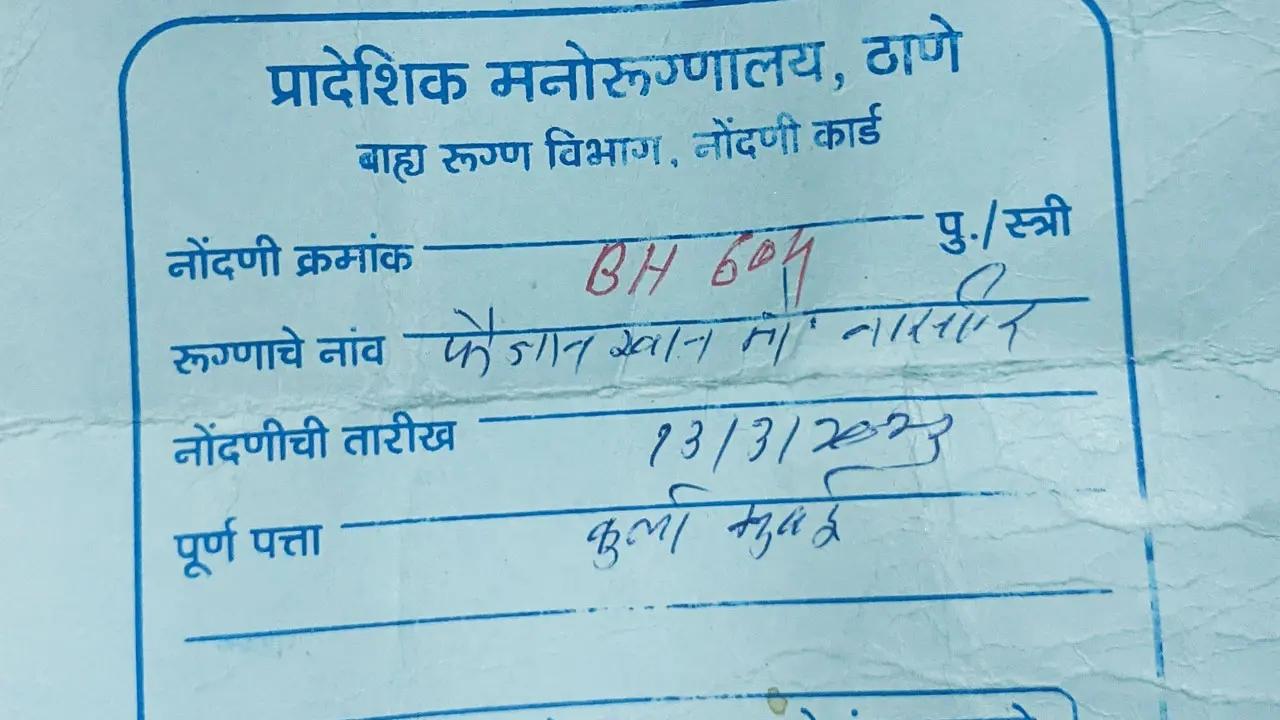 प्रादेशिक मनोरूग्णालय, ठाणे
बाह्य रूग्ण विभाग, नोंदणी कार्ड
नोंदणी क्रमांक BH 604 पु./स्त्री
रूग्णाचे नांव फैजान खान मो.
नोंदणीची तारीख 13/3/2023
पूर्ण पत्ता कुर्ला मुंबई